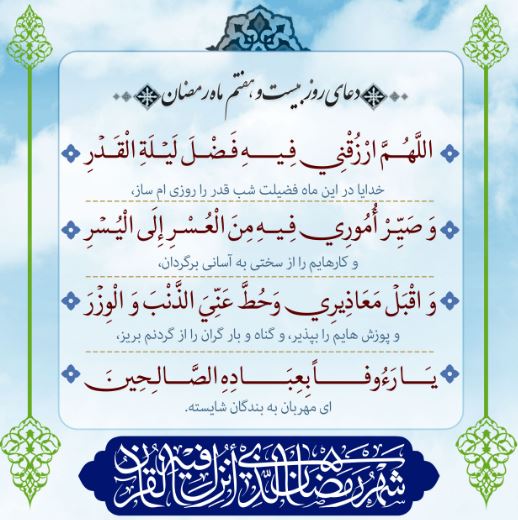 دعای روز بیست و هفتم ماه رمضان
اللَّهُمَّ ارْزُقْنِي فِيهِ فَضْلَ لَيْلَةِ الْقَدْرِ
خدایا در این ماه فضیلت شب قدر را روزی ام ساز،
وَ صَيِّرْ أُمُورِي فِيهِ مِنَ الْعُسْرِ إِلَى الْيُسْرِ
و کارهایم را از سختی به آسانی برگردان،
وَ اقْبَلْ مَعَاذِيرِي وَحُطَّ عَنِّيَ الذَّنْبَ وَ الْوِزْرَ
و پوزش هایم را بپذیر، و گناه و بار گران را از گردنم بریز،
يَا رَءُوفاً بِعِبَادِهِ الصَّالِحِينَ
ای مهربان به بندگان شایسته.
شَهْرُ رَمَضَانَ الَّذِي أُنْزِلَ فِيهِ الْقُرْآنُ